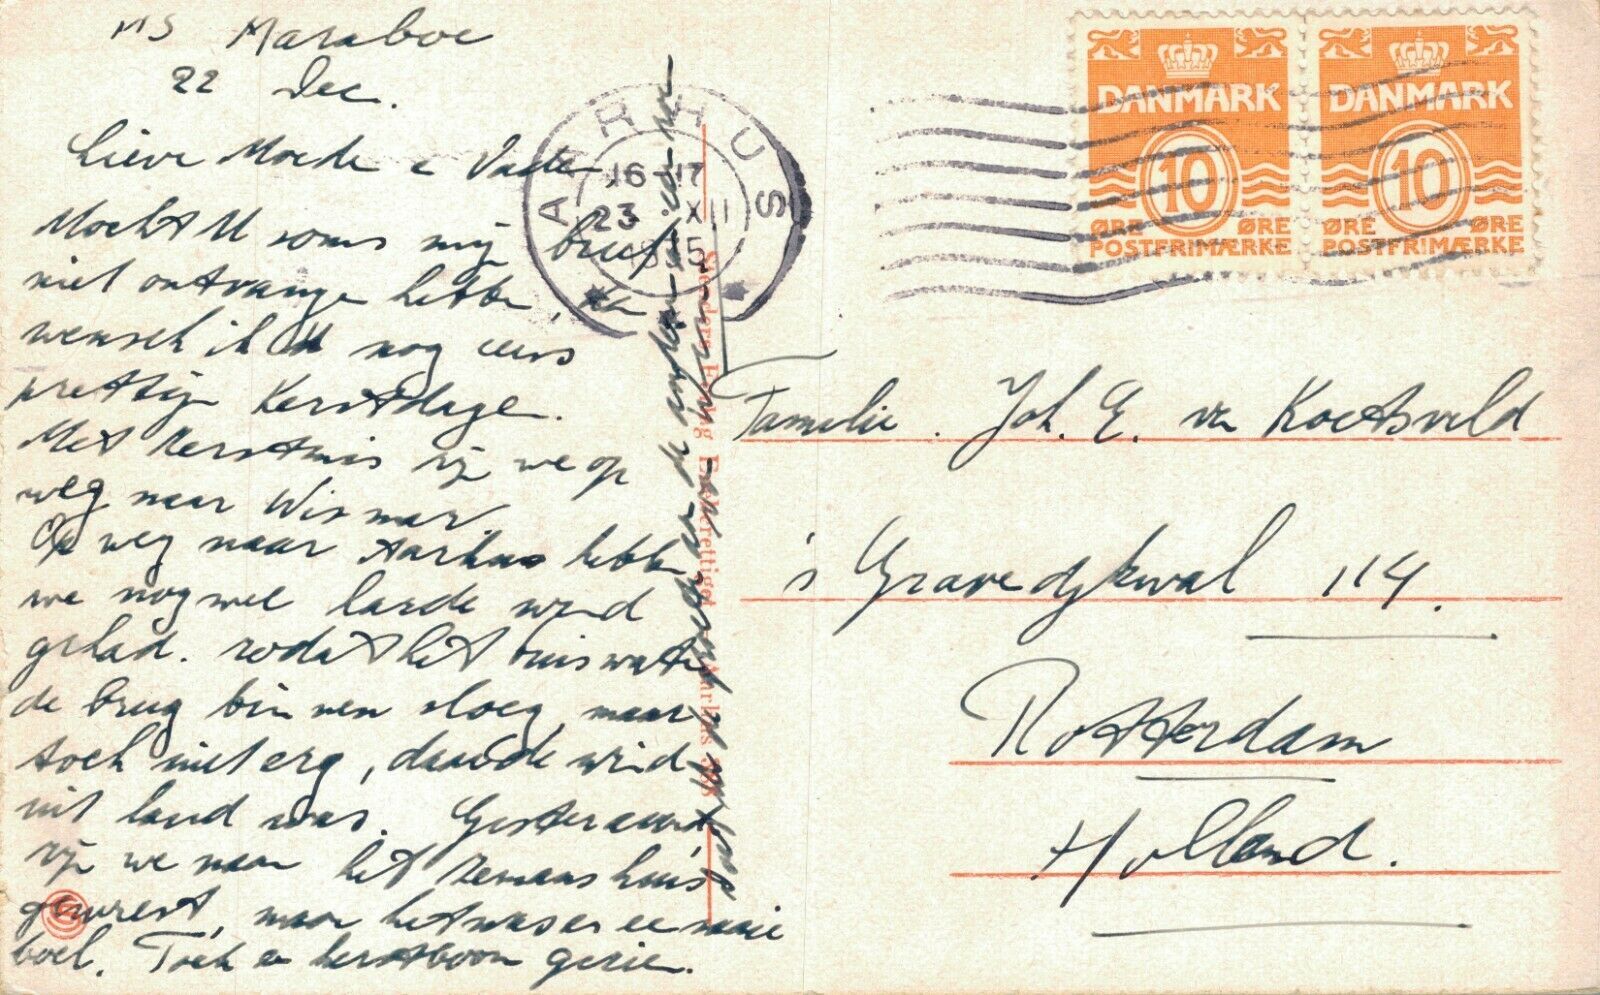 MS Maraboe
22 Dec.
Lieve Moeder & Vader
Mocht U soms mijn brief
niet ontvangen hebben, dan
wensch ik U nog eens
prettige Kerstdagen.
Met Kerstmis zijn we op
weg naar Wismar.
Op weg naar Aarhus hebben
we nog wel harde wind
gehad. zodat het buiswater
de brug binnen sloeg, maar
toch niet erg, daar de wind
uit land was. Gisteravond
zijn we naar het zemanshuis
geweest, maar het was er een saaie
boel. Toch een kerstboom gezien.
AARHUS
16-17
23 XII
DANMARK
10
ØRE ØRE
POSTFRIMÆRKE
DANMARK
10
ØRE ØRE
POSTFRIMÆRKE
Familie Joh. E. van Koetsveld
's Gravendijkwal 114.
Rotterdam
Holland.
Eneberettiget Aarhus